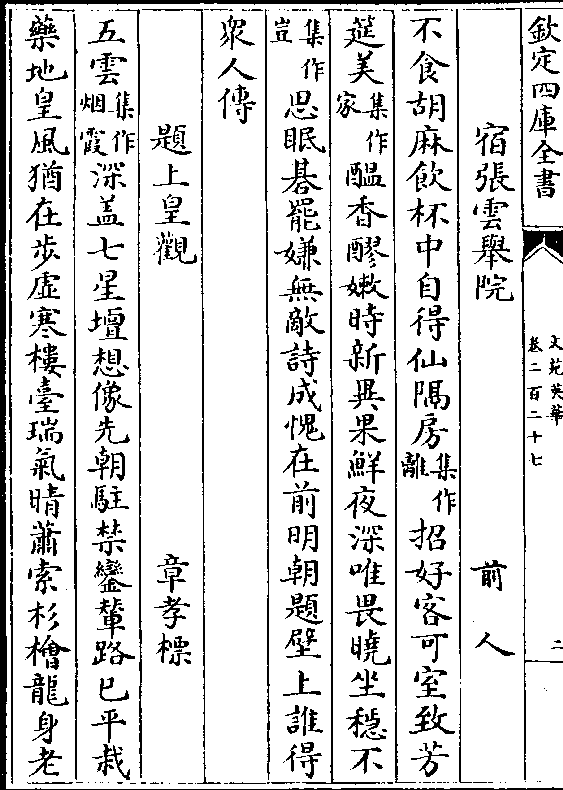 欽定四庫全書
文苑英華
卷二百二十七
二
宿張雲舉院 前人
不食胡麻飲杯中自得仙隔房集作離招好客可室致芳
筵美集作家醖香醪嫩時新異果鮮夜深唯畏曉坐穏不
集作豈思眠碁罷嫌無敵詩成愧在前明朝題壁上誰得
衆人傳
題上皇觀 章孝標
五雲集作烟霞深盖七星壇想像先朝駐禁鑾輦路已平栽
藥地皇風猶在步虛寒樓臺瑞氣晴蕭索杉檜龍身老